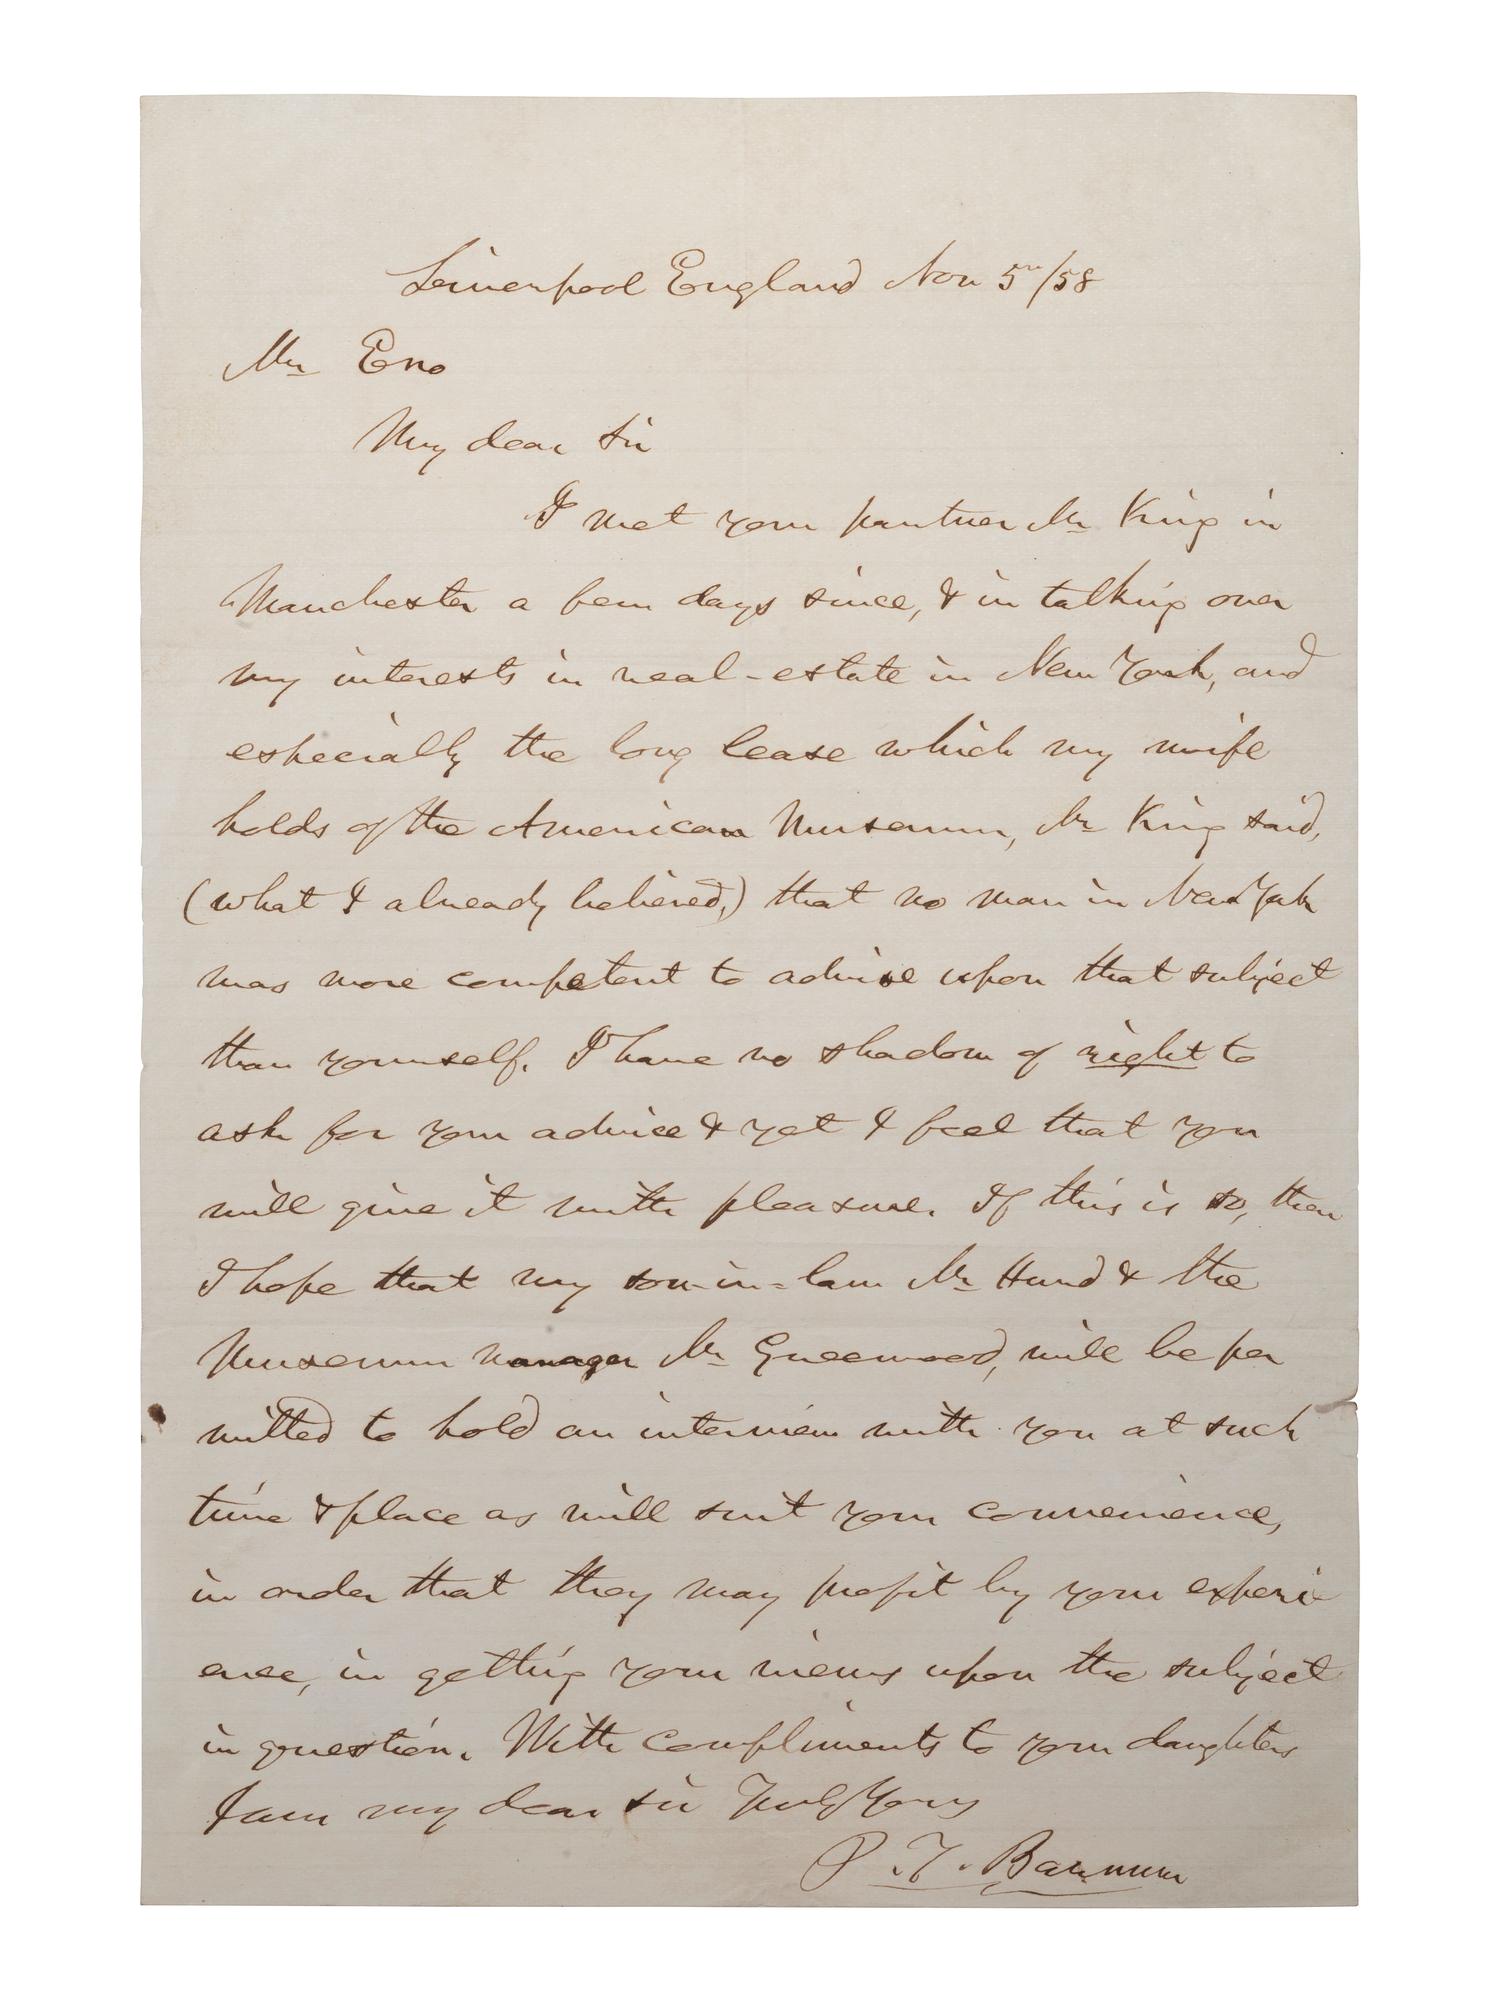 Liverpool England Nov 5th/58
Mr Eno
My dear Sir
I met your partner Mr King in
Manchester a few days since, & in talking over
my interests in real-estate in New York, and
especially the long lease which my wife
holds of the American Museum, Mr King said,
(what I already believed,) that no man in New York
was more competent to advise upon that subject
than yourself. I have no shadow of right to
ask for your advice & yet I feel that you
will give it with pleasure. If this is so, then
I hope that my son-in-law Mr Hurd & the
Museum manager Mr Greenwood, will be per
mitted to hold an interview with you at such
time & place as will suit your convenience,
in order that they may profit by your experi
ence, in getting your views upon the subject
in question. With compliments to your daughters
I am my dear sir Truly Yours
P. T. Barnum